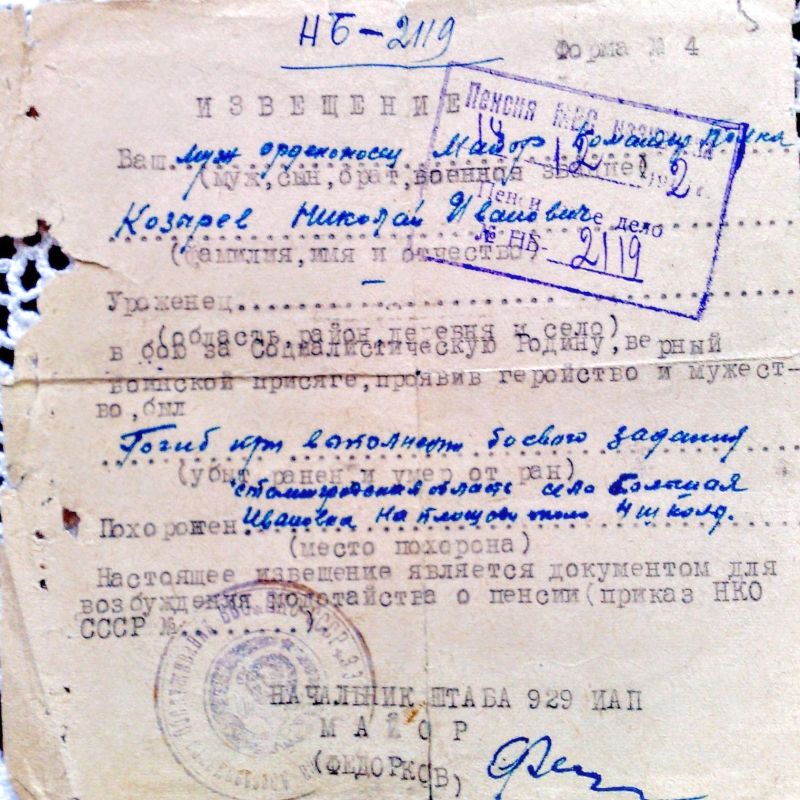 НБ-2119
Форма № 4
ИЗВЕЩЕНИЕ
Пенсия МВС
Ваш муж орденоносец Майор Командир Полка
(муж, сын, брат, военное звание)
14 12 194 2 г.
Козырев Николай Иванович
Пенсионное дело
№ НБ- 2119
(фамилия, имя и отчество)
Уроженец
(область, район, деревня и село)
в бою за Социалистическую Родину, верный
воинской присяге, проявив геройство и мужест-
во, был
Погиб при выполнении боевого задания
(убит, ранен и умер от ран)
Сталинградская область село Большая
Похоронен Ивановка на площади около Н школы.
(место похорона)
Настоящее извещение является документом для
возбуждения ходотайства о пенсии (приказ НКО
СССР №.........).
НАЧАЛЬНИК ШТАБА 929 ИАП
МАЙОР
(ФЕДОРКОВ)